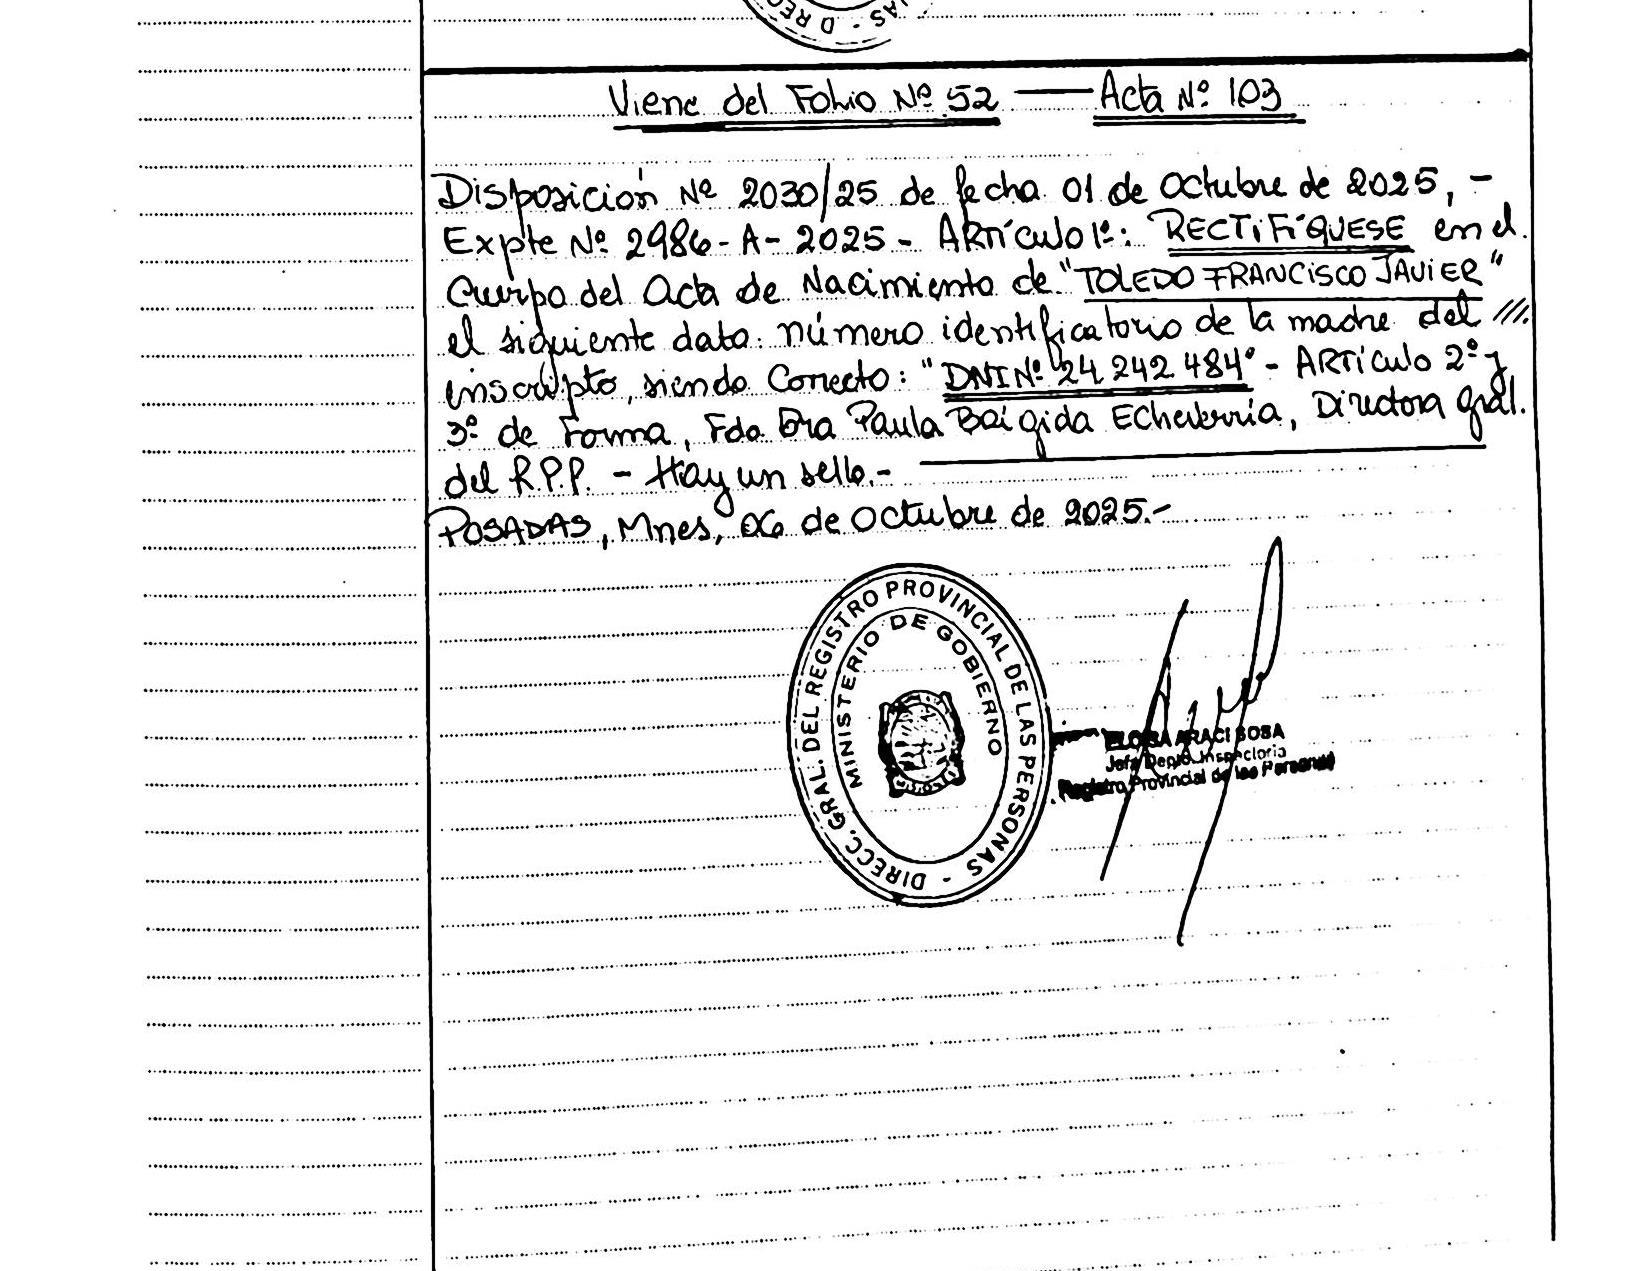 DIRECC. ... NAS -
Viene del Folio Nº 52 — Acta Nº 103
Disposición Nº 2030/25 de fecha 01 de Octubre de 2025, -
Expte Nº 2986-A-2025 - ARTículo 1º: RECTIFíQUESE en el
Cuerpo del Acta de Nacimiento de "TOLEDO FRANCISCO JAVIER"
el siguiente dato: número identificatorio de la madre del ///.
inscripto, siendo Correcto: "DNI Nº 24.242.484" - ARTículo 2º y
3º de Forma, Fdo Dra Paula Brígida Echeverría, Directora Gral.
del R.P.P. - Hay un sello.-
POSADAS, Mnes, 06 de Octubre de 2025.-
DIRECC. GRAL. DEL REGISTRO PROVINCIAL DE LAS PERSONAS -
MINISTERIO DE GOBIERNO
ELOISA ARACI SOSA
Jefa Depto. Inspectoría
Registro Provincial de las Personas